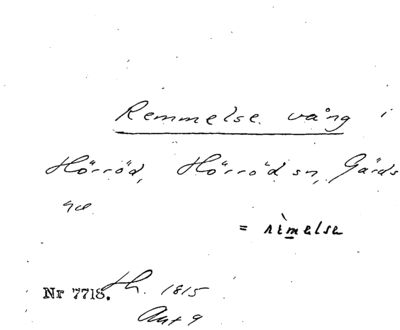 Remmelse vång i
Hörröd, Hörröd sn, Gärds
hd
= rimelse
Nr 7718. Th. 1815
Akt 9